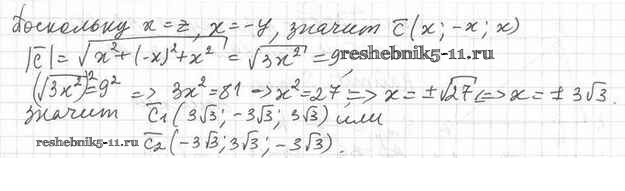 Поскольку x = z, x = -y, значит c̅ (x; -x; x)
|c̅| = √(x²+(-x)²+x²) = √(3x²) = 9,
reshebnik5-11.ru
(√(3x²))² = 9² => 3x² = 81 => x² = 27 => x = ±√27 <=> x = ± 3√3.
значит c̅₁ (3√3; -3√3; 3√3) или
reshebnik5-11.ru
c̅₂ (-3√3; 3√3; -3√3).